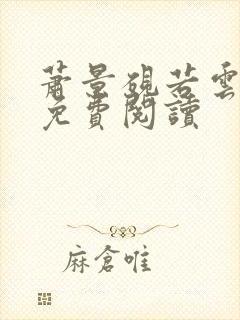 蕭景硯若雲
免費閱讀
麻倉唯